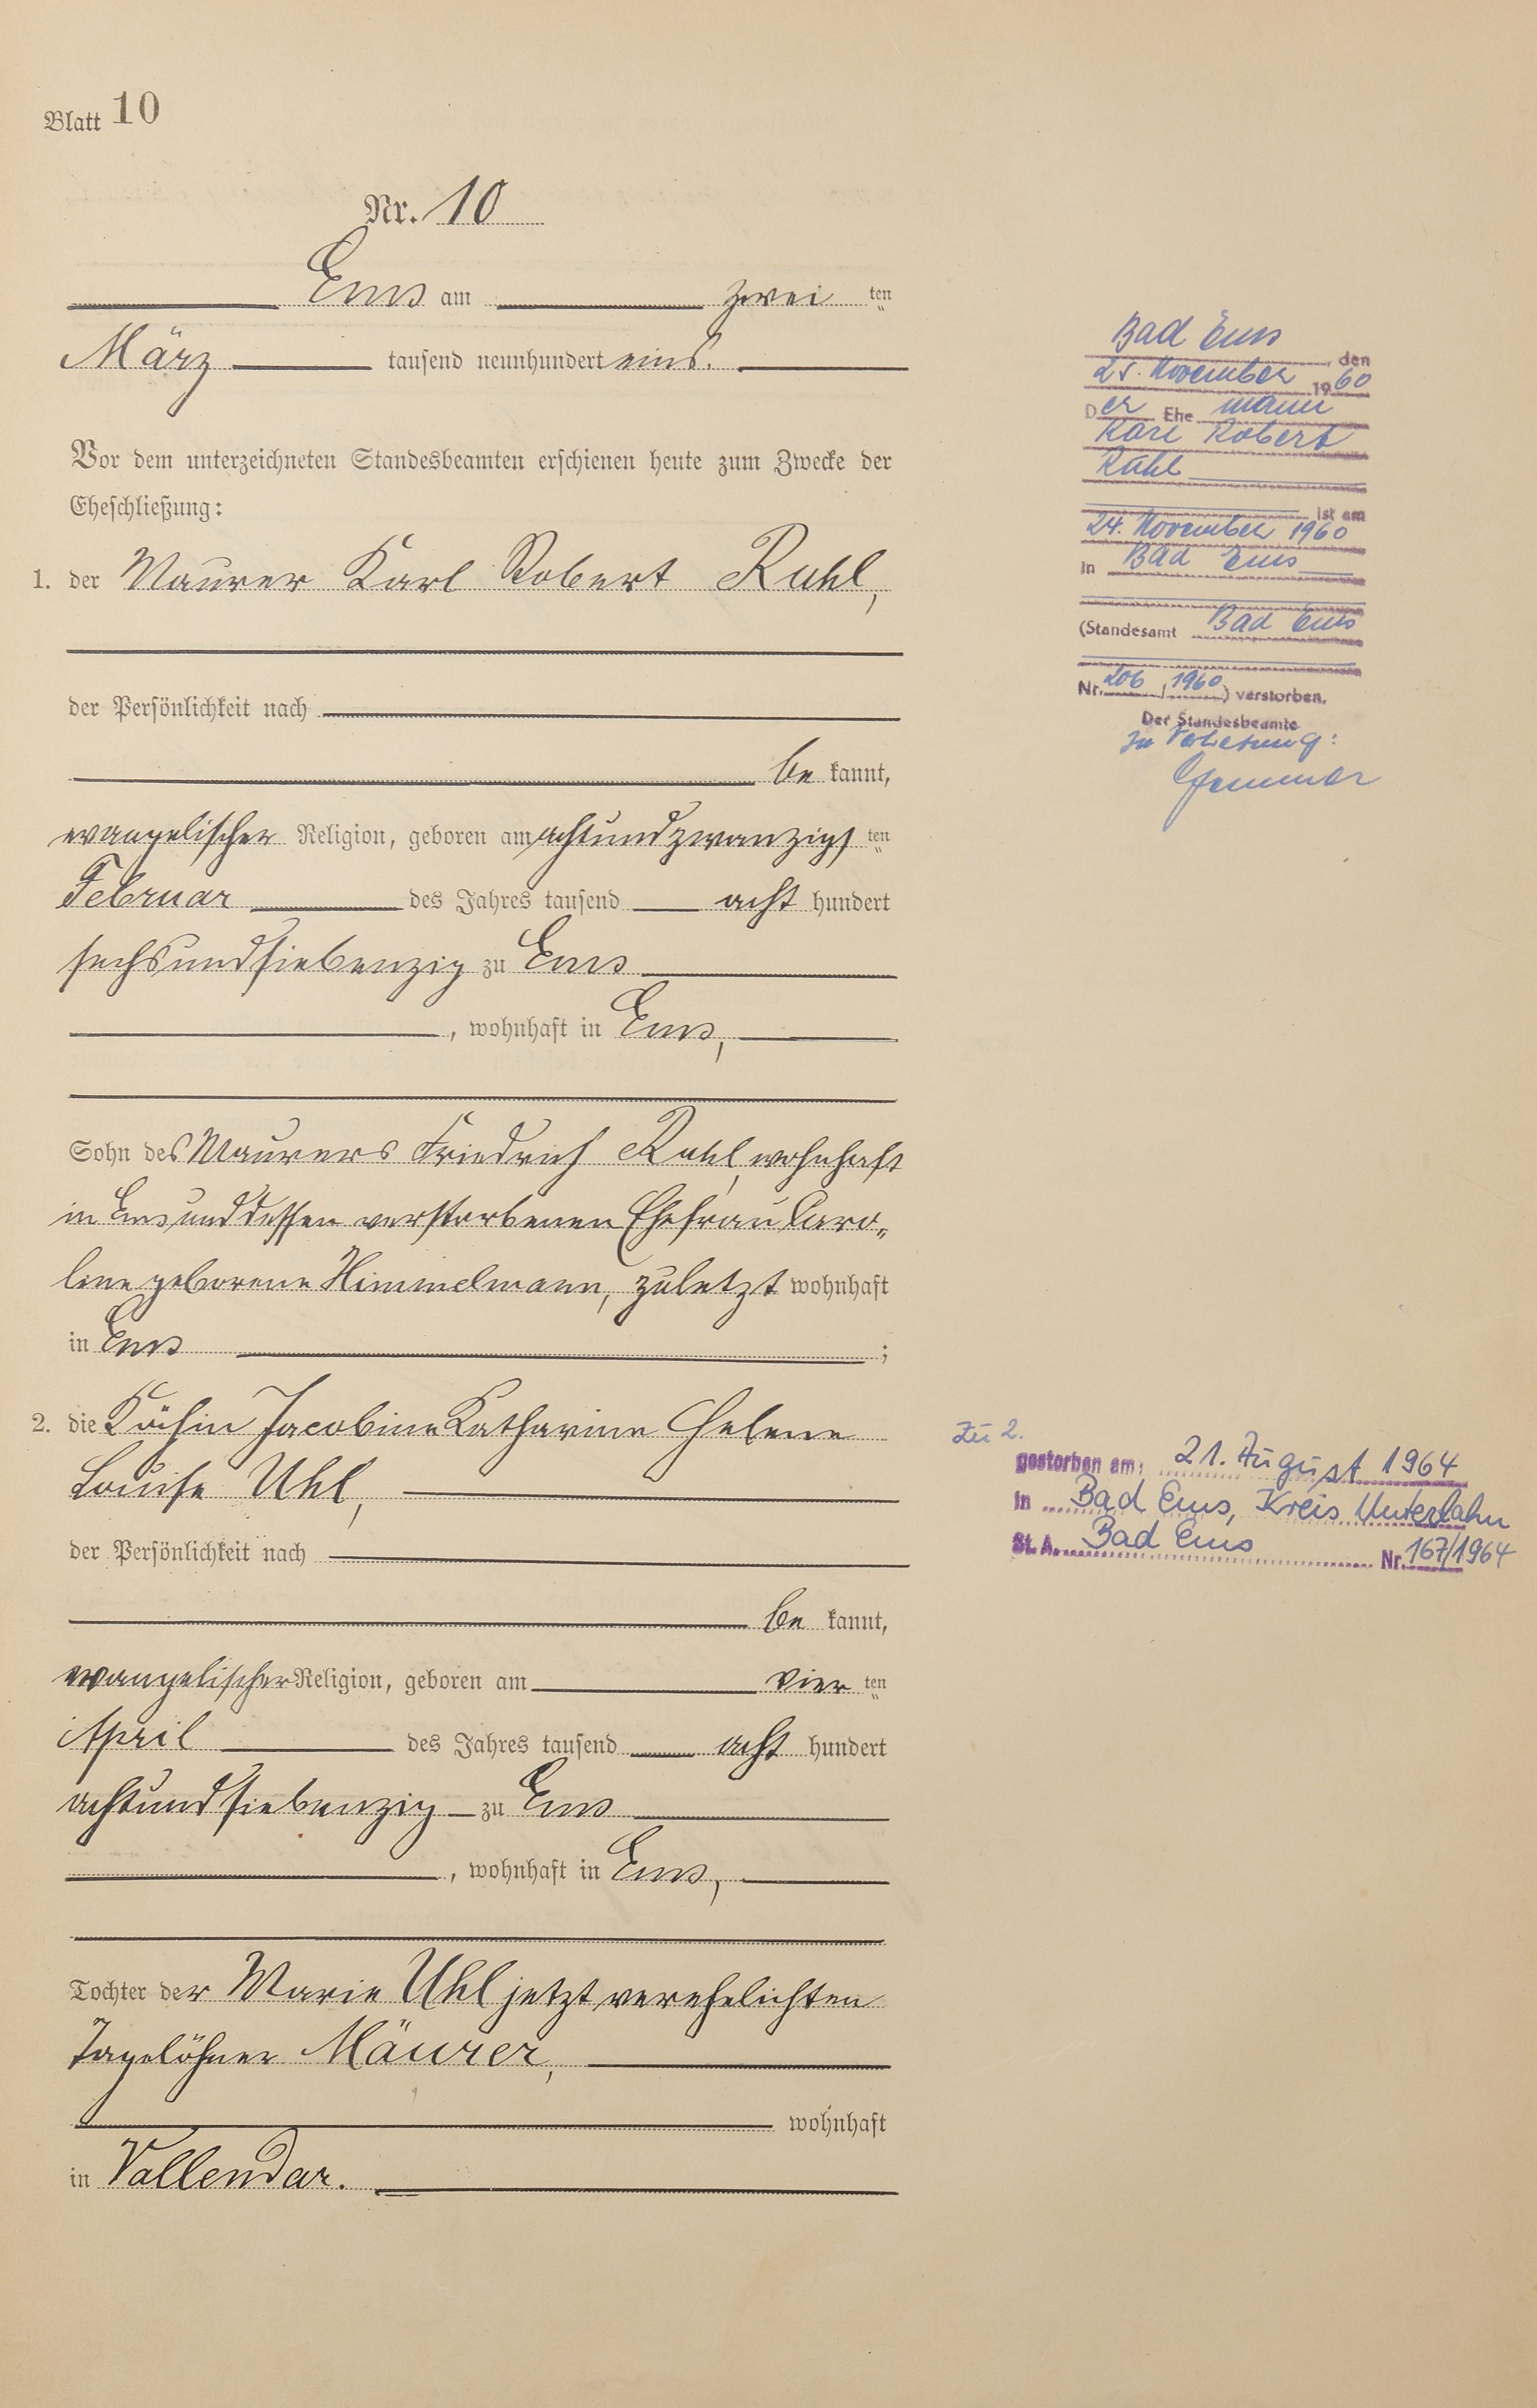 Blatt 10
Nr. 10
Ems am zwei ten
März tausend neunhundert eins.
Vor dem unterzeichneten Standesbeamten erschienen heute zum Zwecke der
Eheschließung:
1. der Maurer Karl Robert Ruhl,
der Persönlichkeit nach
be kannt,
evangelischer Religion, geboren am achtundzwanzigs ten
Februar des Jahres tausend acht hundert
sechsundsiebenzig zu Ems
, wohnhaft in Ems,
Sohn des Maurers Friedrich Ruhl, wohnhaft
in Ems und dessen verstorbenen Ehefrau Caro„
line geborene Himmelmann, zuletzt wohnhaft
in Ems ;
2. die Köchin Jacobine Katharine Helene
Louise Uhl,
der Persönlichkeit nach
be kannt,
evangelischer Religion, geboren am vier ten
April des Jahres tausend acht hundert
achtundsiebenzig zu Ems
, wohnhaft in Ems,
Tochter der Marie Uhl jetzt verehelichten
Tagelöhner Mäurer,
wohnhaft
in Vallendar.
Bad Ems
, den
25. November 1960
Der Ehe mann
Karl Robert
Ruhl
ist am
24. November 1960
in Bad Ems
(Standesamt Bad Ems
Nr. 206 / 1960) verstorben.
Der Standesbeamte
In Vertretung:
Zu 2.
gestorben am: 21. August 1964
in Bad Ems, Kreis Unterlahn
St. A. Bad Ems Nr. 167/1964